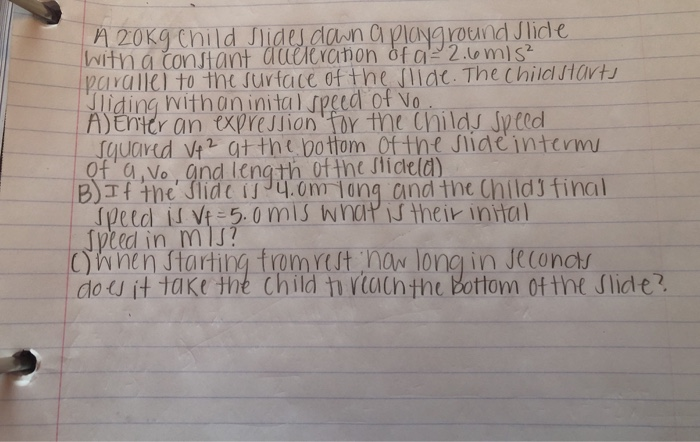 A 20kg child slides down a playground slide
with a constant acceleration of a = 2.6 m/s²
parallel to the surface of the slide. The child starts
sliding with an inital speed of vo.
A) Enter an expression for the childs speed
squared vf² at the bottom of the slide in terms
of a, vo, and length of the slide(d)
B) If the slide is 4.0m long and the child's final
speed is vf = 5.0 m/s what is their inital
speed in m/s?
C) When starting from rest, how long in seconds
does it take the child to reach the bottom of the slide?